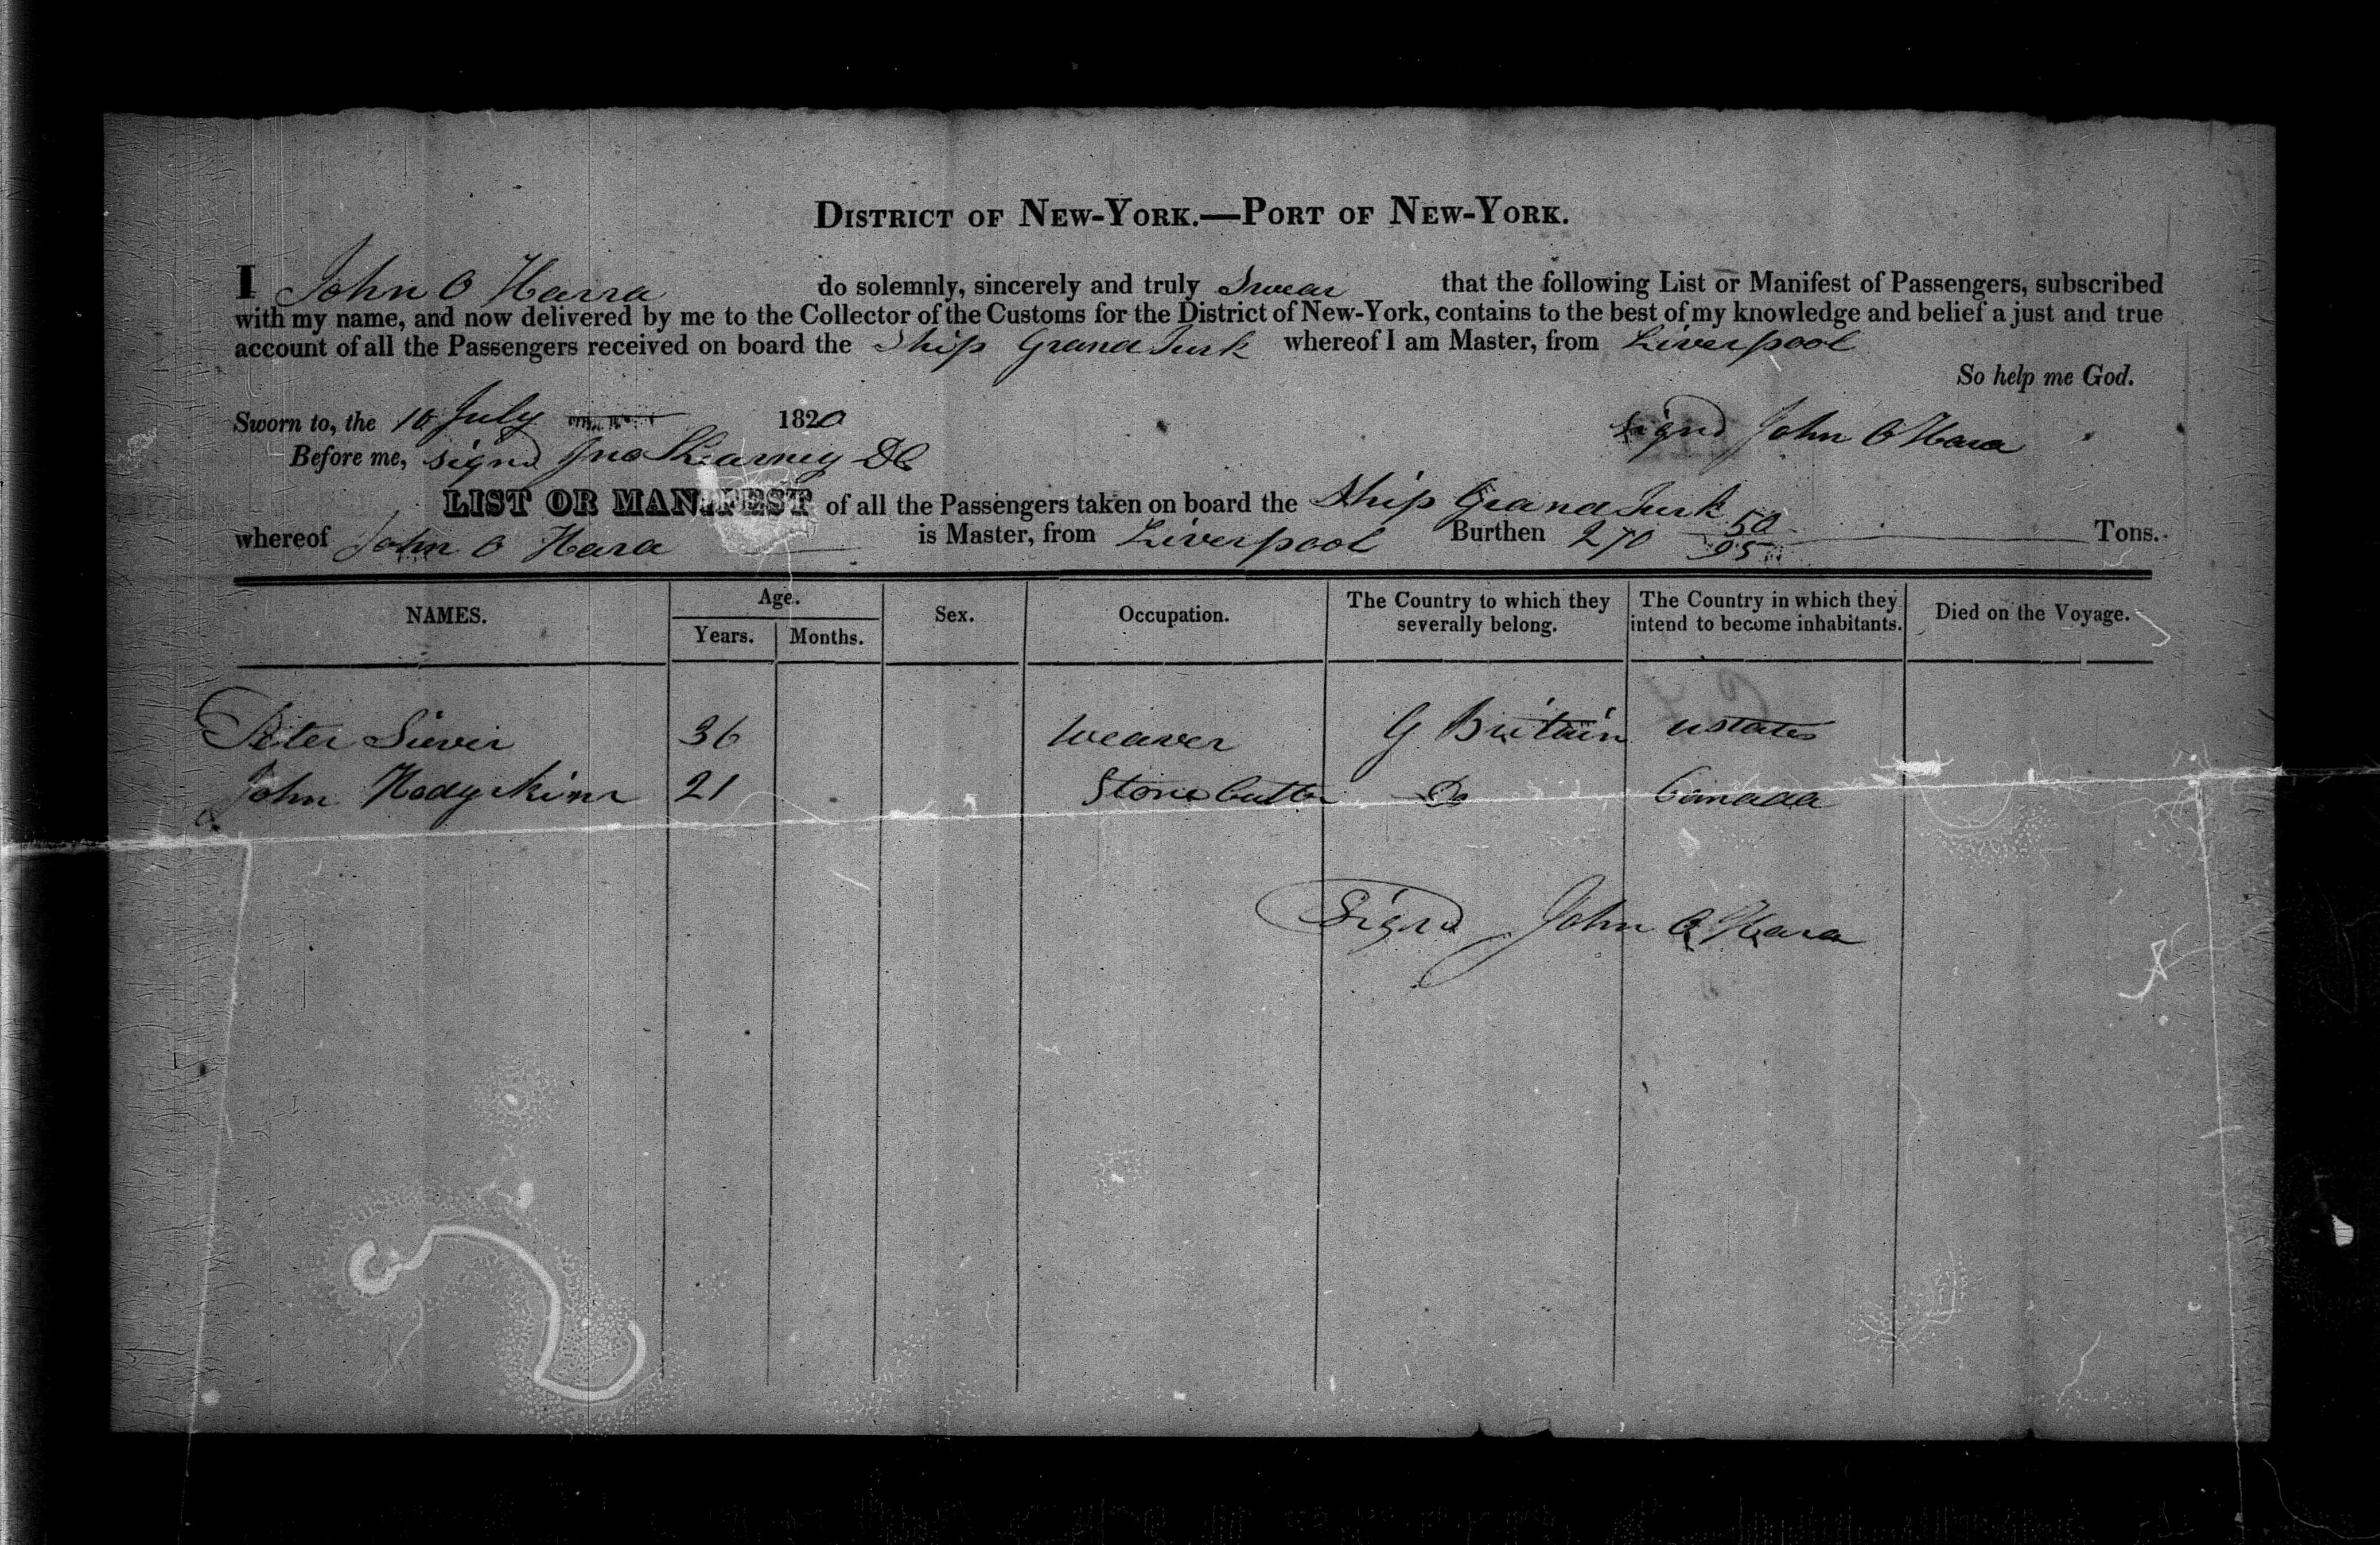 DISTRICT OF NEW-YORK.—PORT OF NEW-YORK.
I John O Harra do solemnly, sincerely and truly Swear that the following List or Manifest of Passengers, subscribed
with my name, and now delivered by me to the Collector of the Customs for the District of New-York, contains to the best of my knowledge and belief a just and true
account of all the Passengers received on board the Ship Grand Turk whereof I am Master, from Liverpool
So help me God.
Sworn to, the 10 July 1820
signd John O Hara
Before me, signd Jno Kearney DC
LIST OR MANIFEST of all the Passengers taken on board the Ship Grand Turk
whereof John O Hara is Master, from Liverpool Burthen 270 50/95 Tons.
NAMES. Age. Years. Months. Sex. Occupation. The Country to which they severally belong. The Country in which they intend to become inhabitants. Died on the Voyage.
Peter 36 Weaver G Britain ustates
John Hodgskins 21 Stone Cutter Do Canada
Signd John O Hara